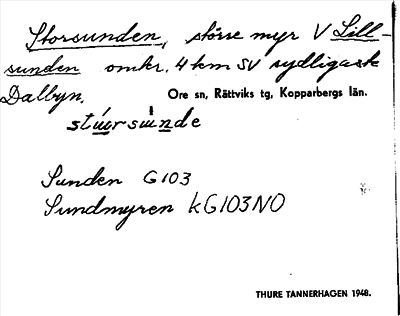 Storsunden, större myr V Lill-
sunden omkr. 4 km SV sydligaste
Dalbyn. Ore sn, Rättviks tg, Kopparbergs län.
stúorsùnde
Sunden G103
Sundmyren kG103NO
THURE TANNERHAGEN 1948.